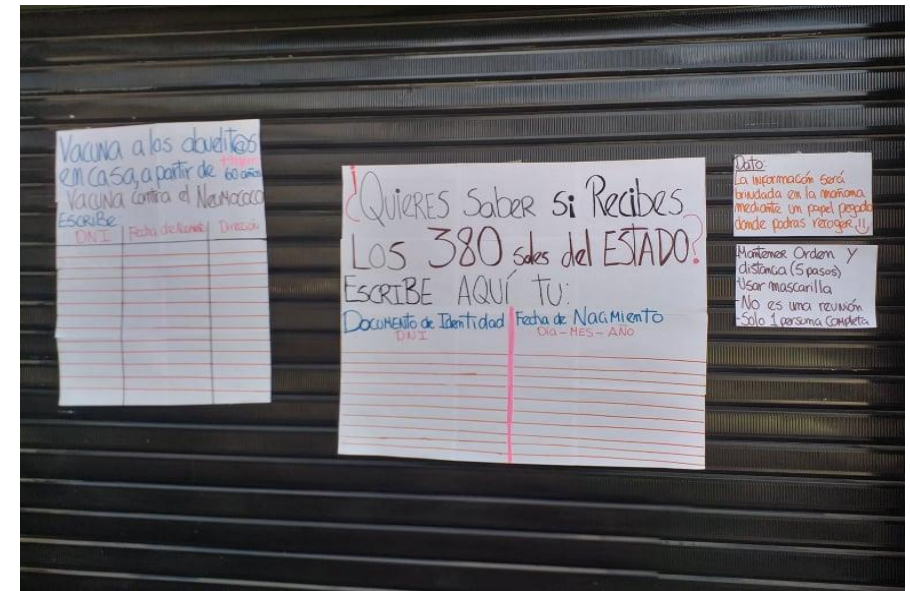 Vacuna a los abuelit@s
en casa, a partir de 60 años
Vacuna contra el Neumococo
EscRiBe
DNI Fecha de Nacimi. Dirección
¿QUIERES Saber Si Recibes
Los 380 soles del ESTADO?
EscRIBE AQUÍ TU:
Documento de Identidad Fecha de NaciMiento
DNI Día-MES-AÑO
Dato:
La información será
brindada en la mañana
mediante un papel pegado
donde podras recoger.!!
Mantener Orden y
distancia (5 pasos)
-Usar mascarilla
-No es una reunión
-Solo 1 persona Completa